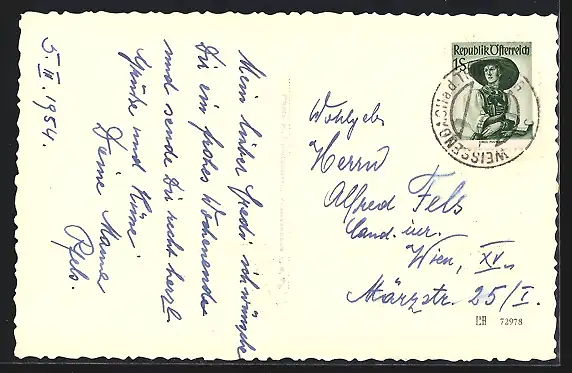 5. II. 1954.
Mein lieber Fredi ich wünsche
Dir ein frohes Wochenende
und sende Dir recht herzl.
Grüße und Küsse.
Deine Mama
Republik Österreich
1S
WEISSENBACH
Wohlgeb.
Herrn
Alfred Fels
Cand. iur.
Wien, XV.
Märzstr. 25/I.
72978